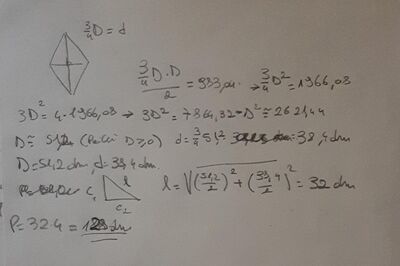 3/4 D = d
(3/4 D · D)/2 = 983,04 → 3/4 D² = 1966,08
3D² = 4 · 1966,08 → 3D² = 7864,32 → D² ≅ 2621,44
D ≅ 51,2 D ≥ 0) d = 3/4 51,2 = 38,4 dm
D = 51,2 dm, d = 38,4 dm.
C₁ l l = √((51,2/2)² + (38,4/2)²) = 32 dm
C₂
P = 32·4 = 128 dm